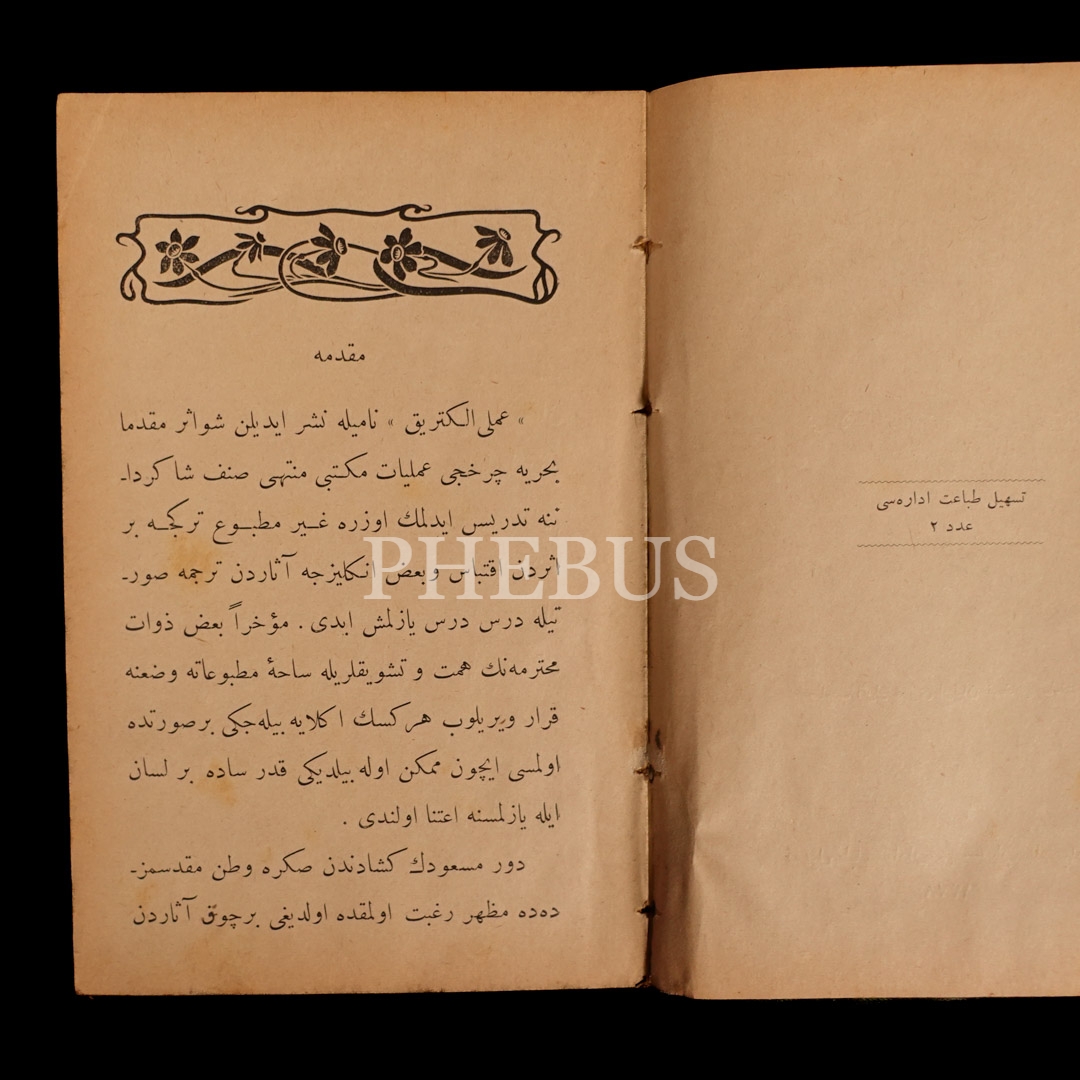 تسهیل طباعت اداره‌سی
عدد ۲
مقدمه
« عملی الـکتریق » نامیله نشر ایدیلن شو اثر مقدما
بحریه چرخجی عملیات مکـتبی منتهی صنف شاکردا۔
ننه تدریس ایدلمك اوزره غـیر مطبـوع ترکجـه بر
اثردن اقتباس وبعض انـکلیزجه آثاردن ترجمه صور۔
تیله درس درس یازلمش ایدی . مؤخراً بعض ذوات
محترمه‌نك همت و تشویقلریله ساحۀ مطبوعاته وضعنه
قرار ویریلوب هرکسك اکلایه بیله‌جکی برصورتده
اولمسی ایچون ممکن اوله بیلدیکی قدر ساده بر لسان
ایله یازلمسنه اعتنا اولندی .
دور مسعودك کشادندن صکره وطن مقدسمز۔
ده‌ده مظهر رغبت اولمقده اولدیغی برچوق آثاردن
PHEBUS